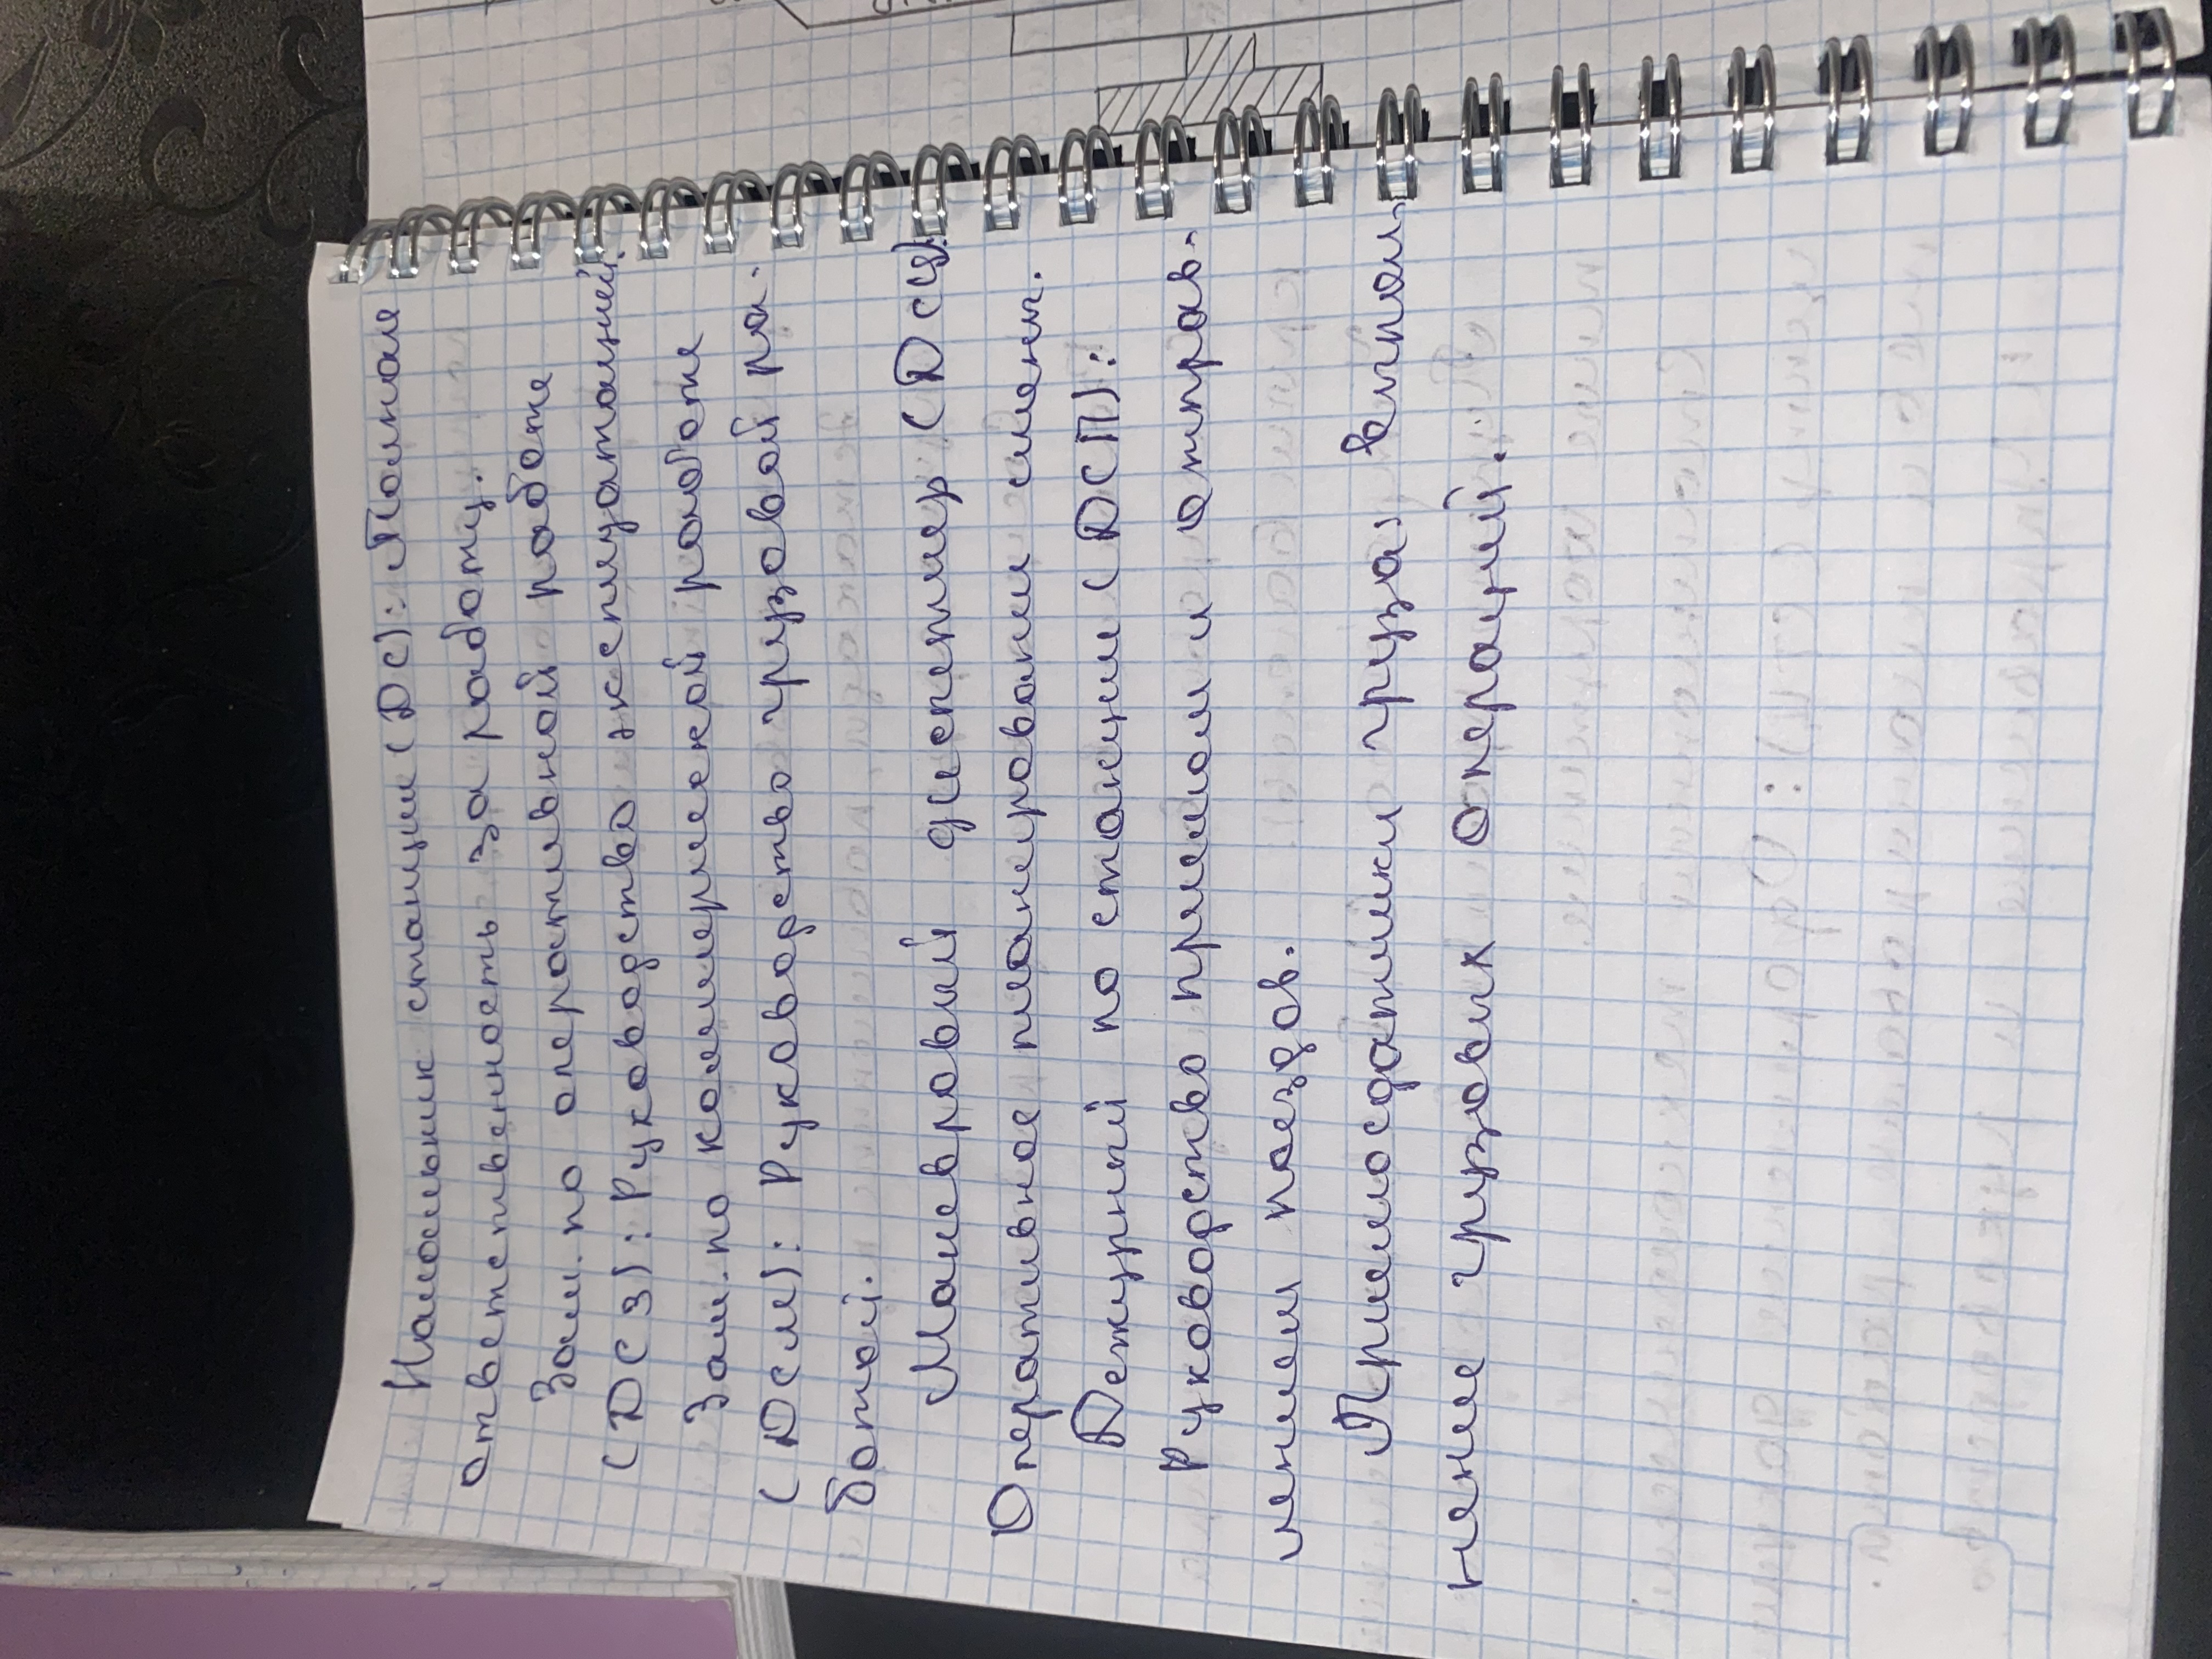 Начальник станции (ДС): Полная
ответственность за работу.
Зам. по оперативной работе
(ДСЗ): Руководство эксплуатацией.
Зам. по коммерческой работе
(ДСМ): Руководство грузовой ра-
ботой.
Маневровый диспетчер (ДСЦ):
Оперативное планирование смены.
Дежурный по станции (ДСП):
Руководство приемом и отправ-
лением поездов.
Приемосдатчики груза: выпол-
нение грузовых операций.